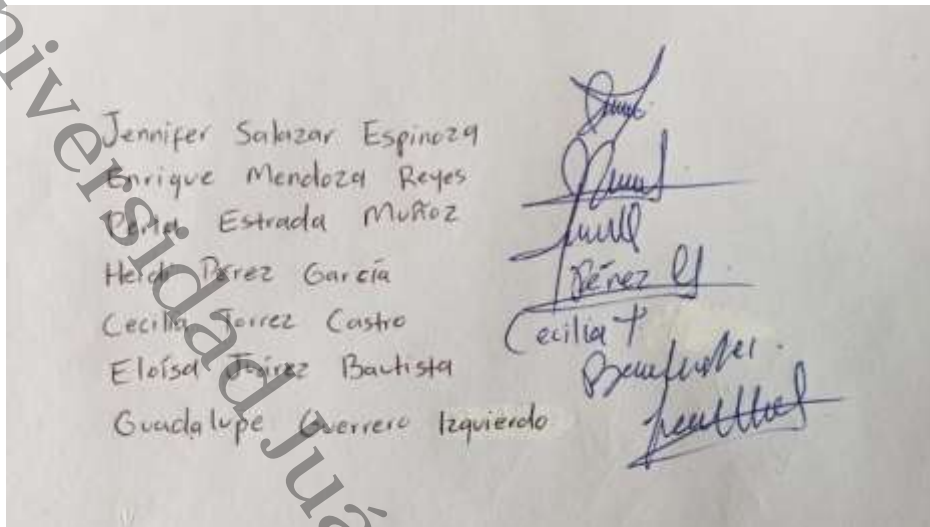 Jennifer Salazar Espinoza
Enrique Mendoza Reyes
Perla Estrada Muñoz
Heidi Pérez García
Pérez G
Cecilia Torrez Castro
Cecilia T
Eloísa Juárez Bautista
Guadalupe Guerrero Izquierdo
Universidad Juá